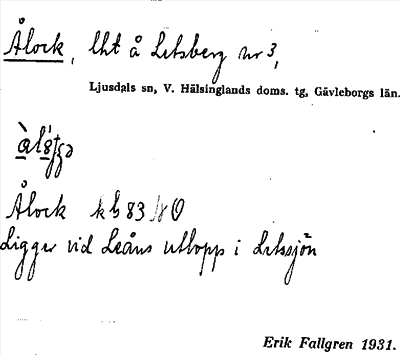 Ålock, lht å Letsberg nr 3,
Ljusdals sn, V. Hälsinglands doms. tg, Gävleborgs län.
Ålock kb 83 NO
Ligger vid Leåns utlopp i Letssjön
Erik Fallgren 1931.